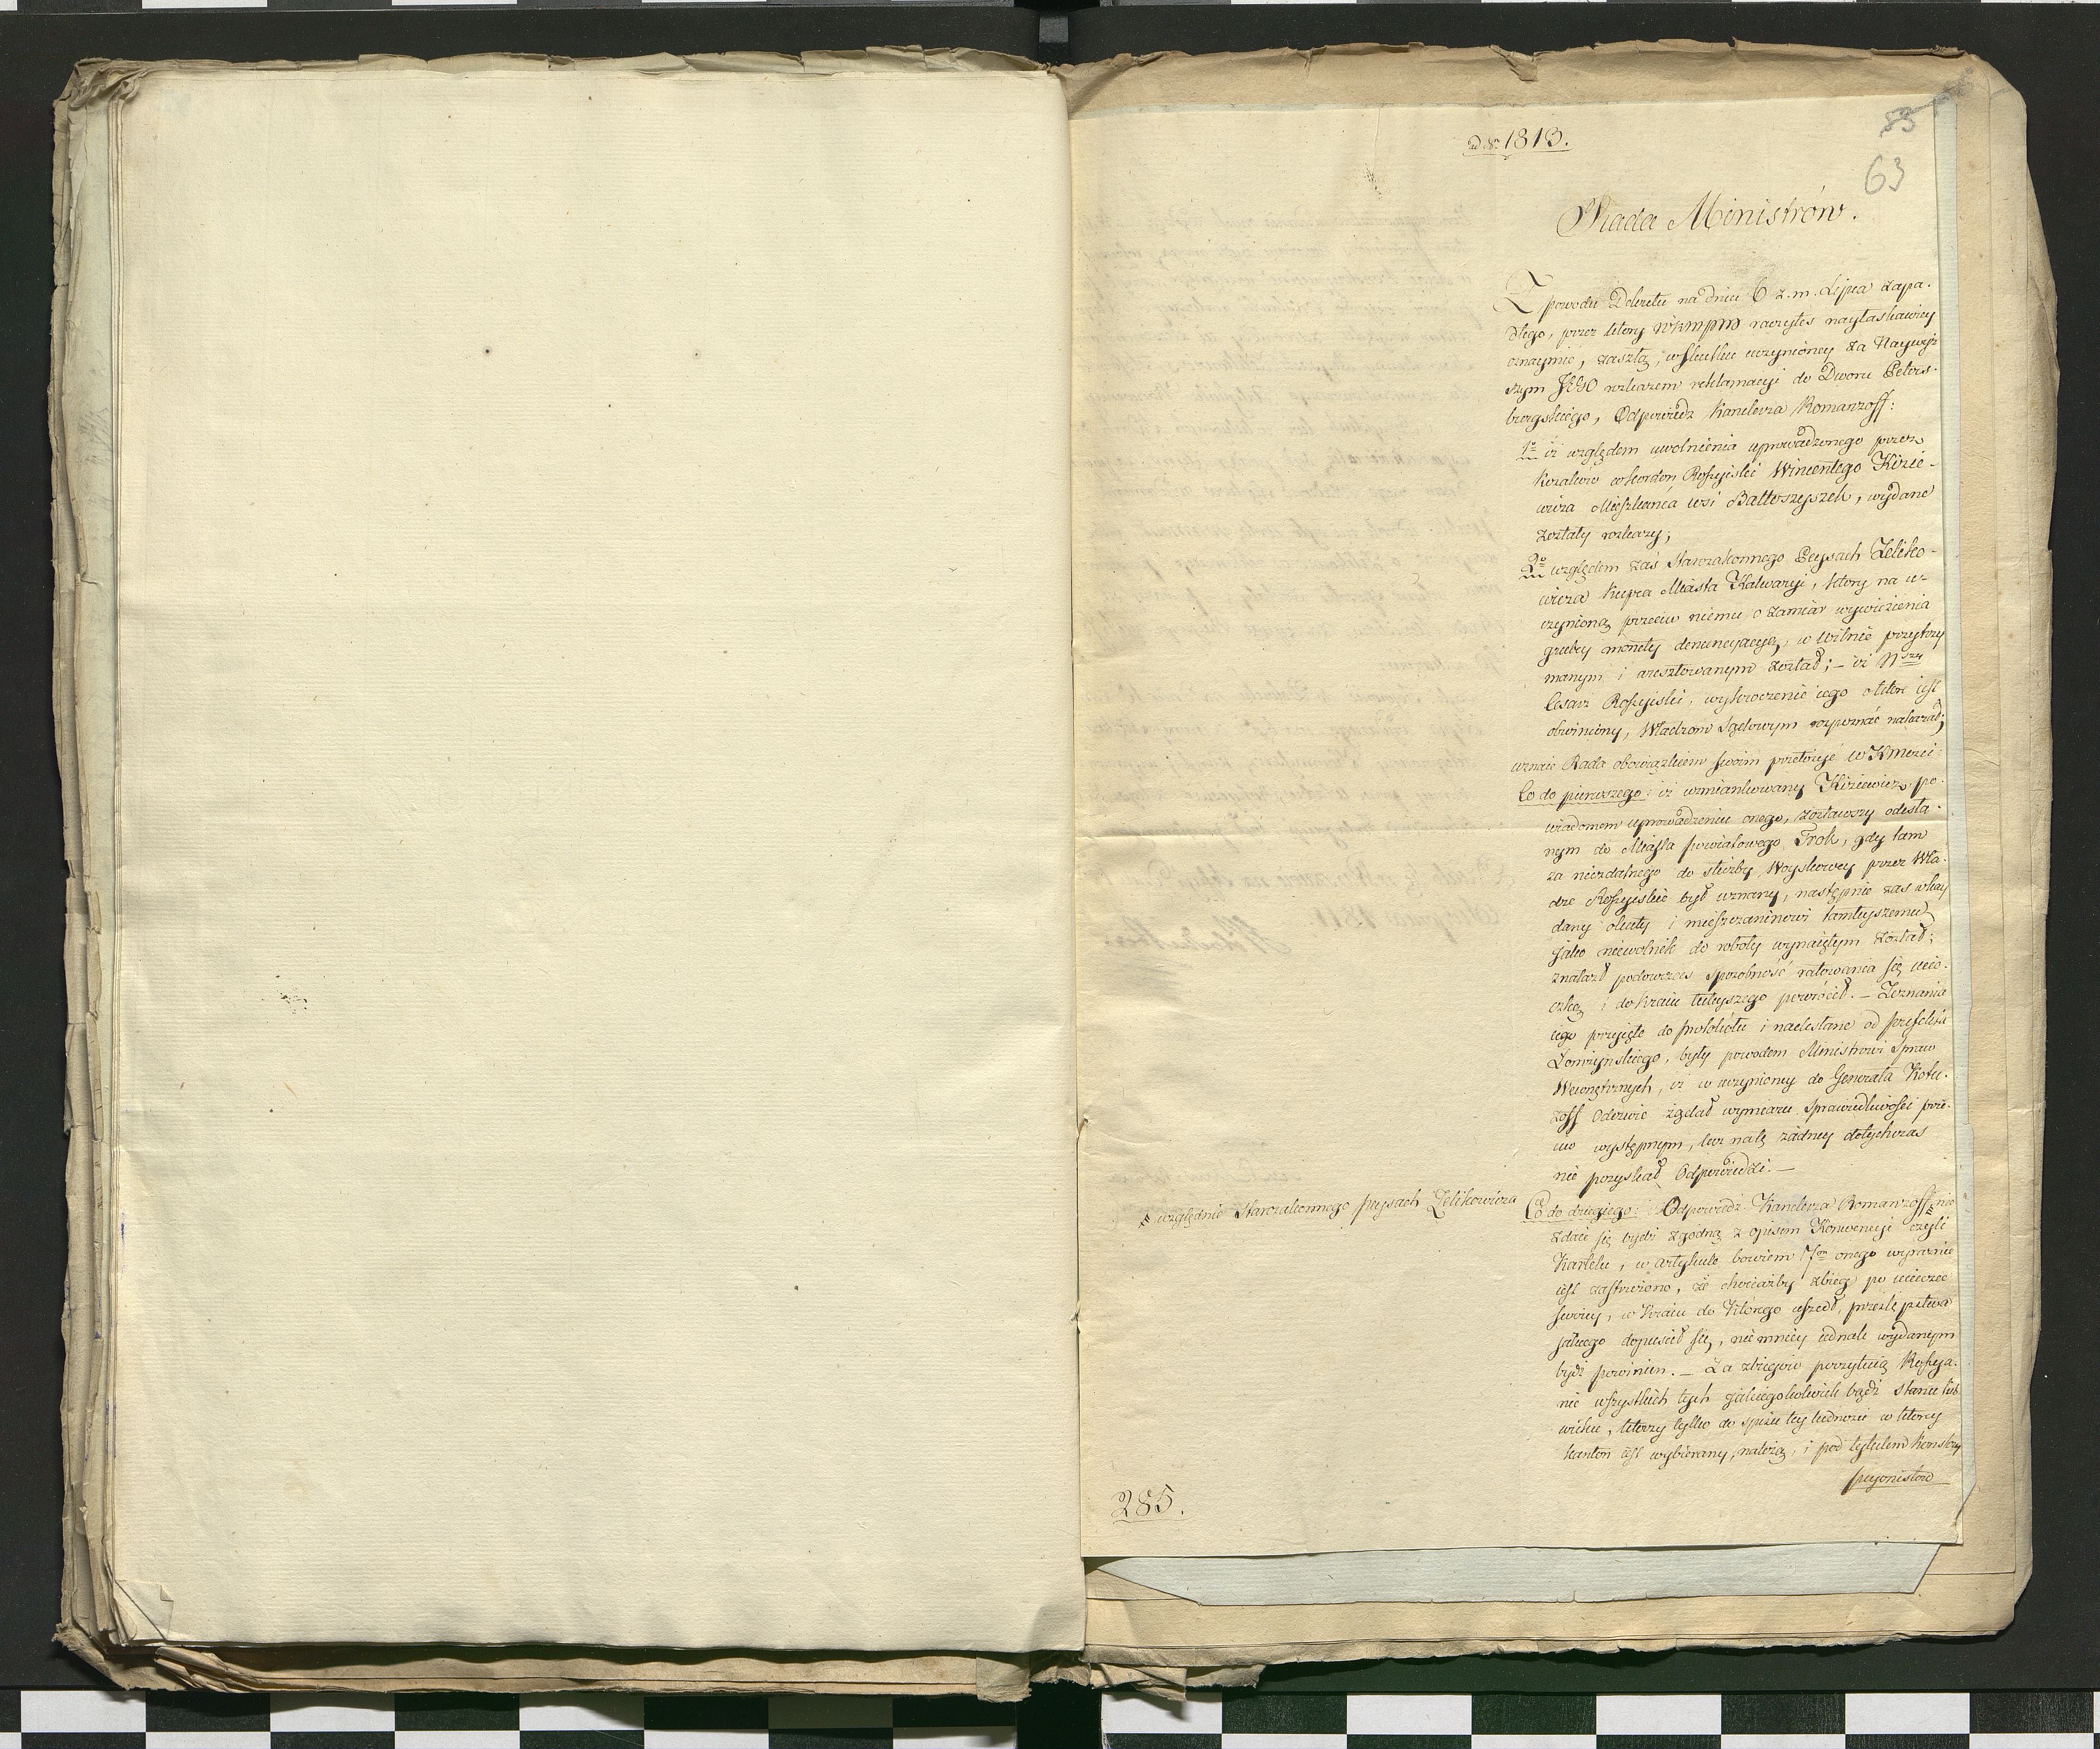 ad N. 1813.
83
63
Rada Ministrów.
Z powodu Dekretu na dniu 6 z.m. Lipca zapa-
dłego, przez który WKMPM raczyłeś nayłaskawiey
oznaymić, zaszłą, w skutku uczynioney za Naywyż-
szym JEGO rozkazem reklamacyi do Dworu Peters-
burgskiego, Odpowiedz Kanclerza Romanzoff:
1o iż względem uwolnienia uprowadzonego przez
Kozaków w Kordon Rossyiski Wincentego Kizie-
wicza Mieszkańca wsi Balkoszyszek, wydane
zostały rozkazy;
2o względem zaś Starozakonnego Peysach Zeliko-
wicza Kupca Miasta Kalwaryi, który na u-
czynioną przeciw niemu o zamiar wywiezienia
grubey monety denuncyacyą, w Wilnie przytrzy
manym i aresztowanym został; – iż N
Cesarz Rossyiski, wykroczenie iego o które iest
obwiniony, Władzom Sądowym rozpoznać nakazał;
uznaie Rada obowiązkiem swoim przełożyć WKMości:
Co do pierwszego: iż wzmiankowany Kiziewicz po-
wiadomem uprowadzeniu onego, zostawszy odesła-
nym do Miasta powiatowego Trok, gdy tam
za niezdatnego do służby Woyskowey przez Wła-
dze Rossyiskie był uznany, następnie zaś w kay
dany okuty i mieszczaninowi tamteyszemu
jako niewolnik do roboty wynaiętym został;
znalazł podówczas sposobność ratowania się ucie-
czką i do Kraiu tuteyszego powrócił. – Zeznania
iego przyięte do protokółu i nadesłane od prefekta
Łomżyńskiego, były powodem Ministrowi Spraw
Wewnętrznych, iż w uczynioney do Generała Kotu-
zoff Odezwie żądał wymiaru sprawiedliwości prze-
ciw występnym, lecz na tę żadney dotychczas
nie pozyskał Odpowiedzi. –
względnie Starozakonnego peysach Zelikowicza
Co do drugiego: Odpowiedź Kanclerza Romanzoff nie
zdaie się bydź zgodną z opisem Konwencyi czyli
Kartelu, w artykule bowiem 7m onego wyraznie
iest zastrzeżono, że chociażby zbieg po ucieczce
swoiey, w Kraiu do którego uszedł, przestępstwa
jakiego dopuścił się, niemniey iednak wydanym
bydź powinien. – Za zbiegów poczytuią Rossya-
nie wszystkich tych jakiegokolwiek bądź stanu lub
wieku, którzy tylko do spisu tey ludności w którey
kanton iest wybierany, należą, i pod tytułem Konskry
pcyonistów
285.